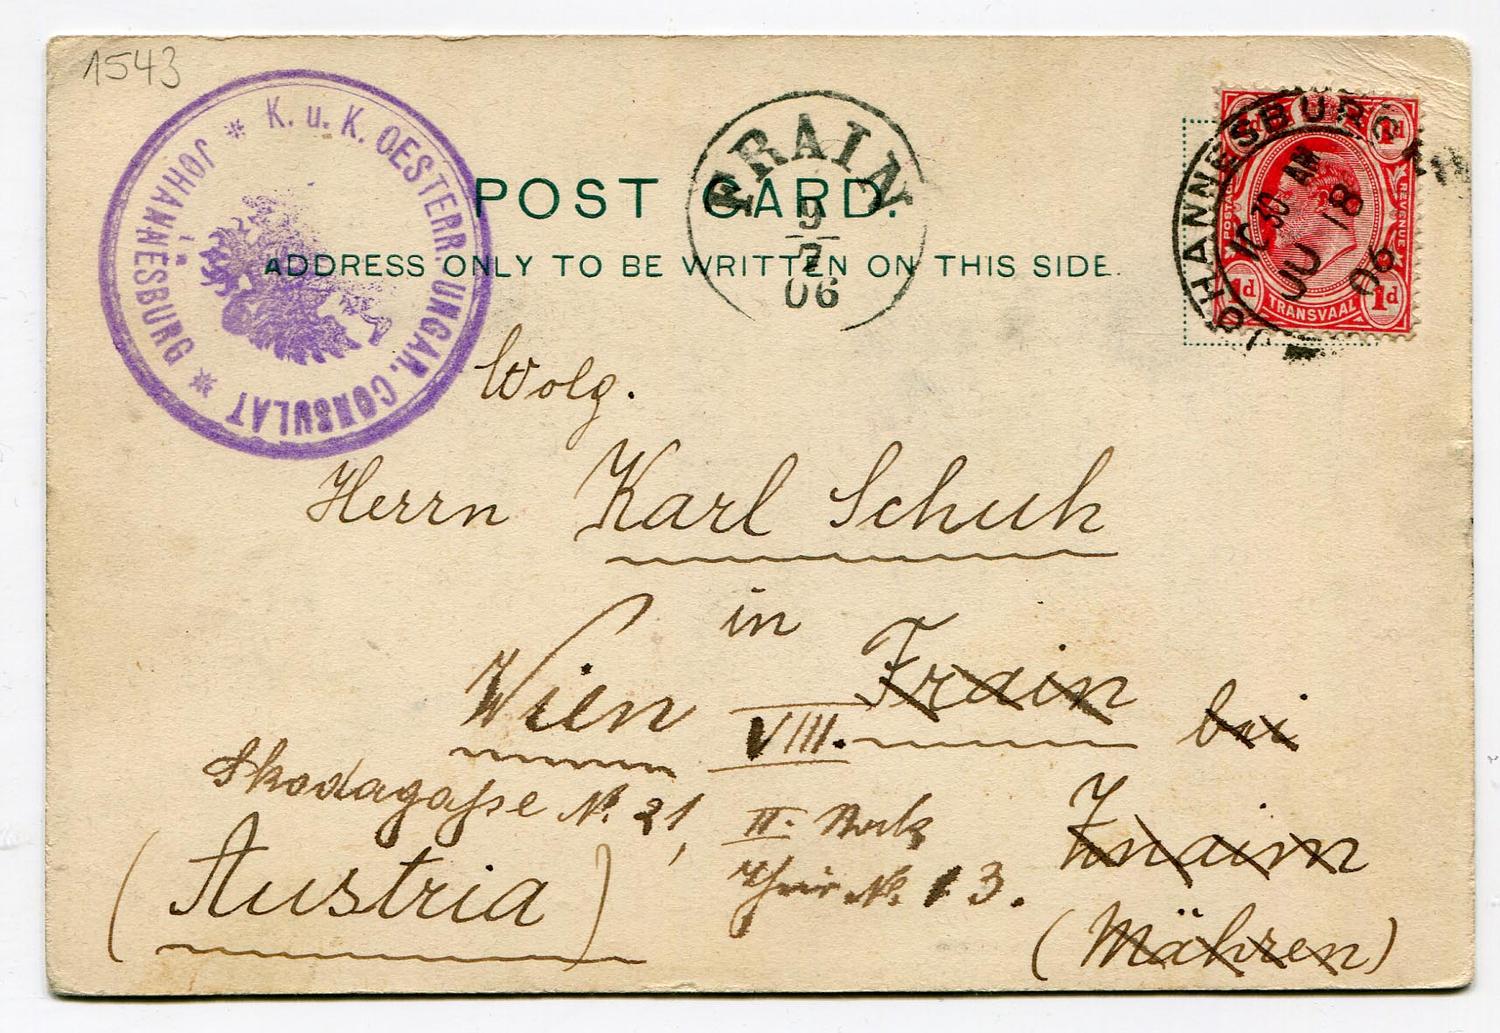 1543
K. u. K. OESTERR. UNGAR. CONSULAT
in
JOHANNESBURG
FRAIN
9
7
06
JOHANNESBURG
10 30 AM
JU 18
06
1d 1d
POSTAGE REVENUE
TRANSVAAL
1d 1d
POST CARD.
ADDRESS ONLY TO BE WRITTEN ON THIS SIDE.
Wolg.
Herrn Karl Schuh
in
Wien VIII. Frain bei
Skodagasse No. 21, II. Stock Znaim
Thür No. 13.
(Austria) (Mähren)